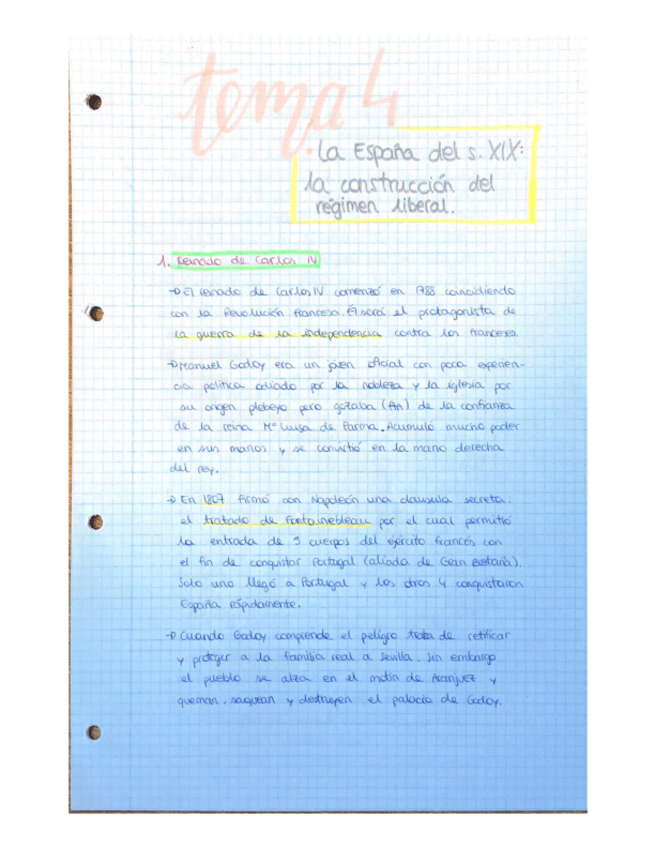 tema 4
La España del s. XIX:
la construcción del
régimen liberal.
1. Reinado de Carlos IV
→ El reinado de Carlos IV comenzó en 1788 coincidiendo
con la Revolución Francesa. Él será el protagonista de
la guerra de la independencia contra los franceses.
→ Manuel Godoy era un joven oficial con poca experien-
cia política odiado por la nobleza y la iglesia por
su origen plebeyo pero gozaba (fin) de la confianza
de la reina Mª Luisa de Parma. Acumuló mucho poder
en sus manos y se convirtió en la mano derecha
del rey.
→ En 1807 firmó con Napoleón una clausula secreta:
el tratado de Fontainebleau por el cual permitió
la entrada de 5 cuerpos del ejército francés con
el fin de conquistar Portugal (aliada de Gran Bretaña).
Solo uno llegó a Portugal y los otros 4 conquistaron
España rápidamente.
→ Cuando Godoy comprende el peligro trata de retificar
y proteger a la familia real a Sevilla. Sin embargo
el pueblo se alza en el motín de Aranjuez y
queman, saquean y destruyen el palacio de Godoy.